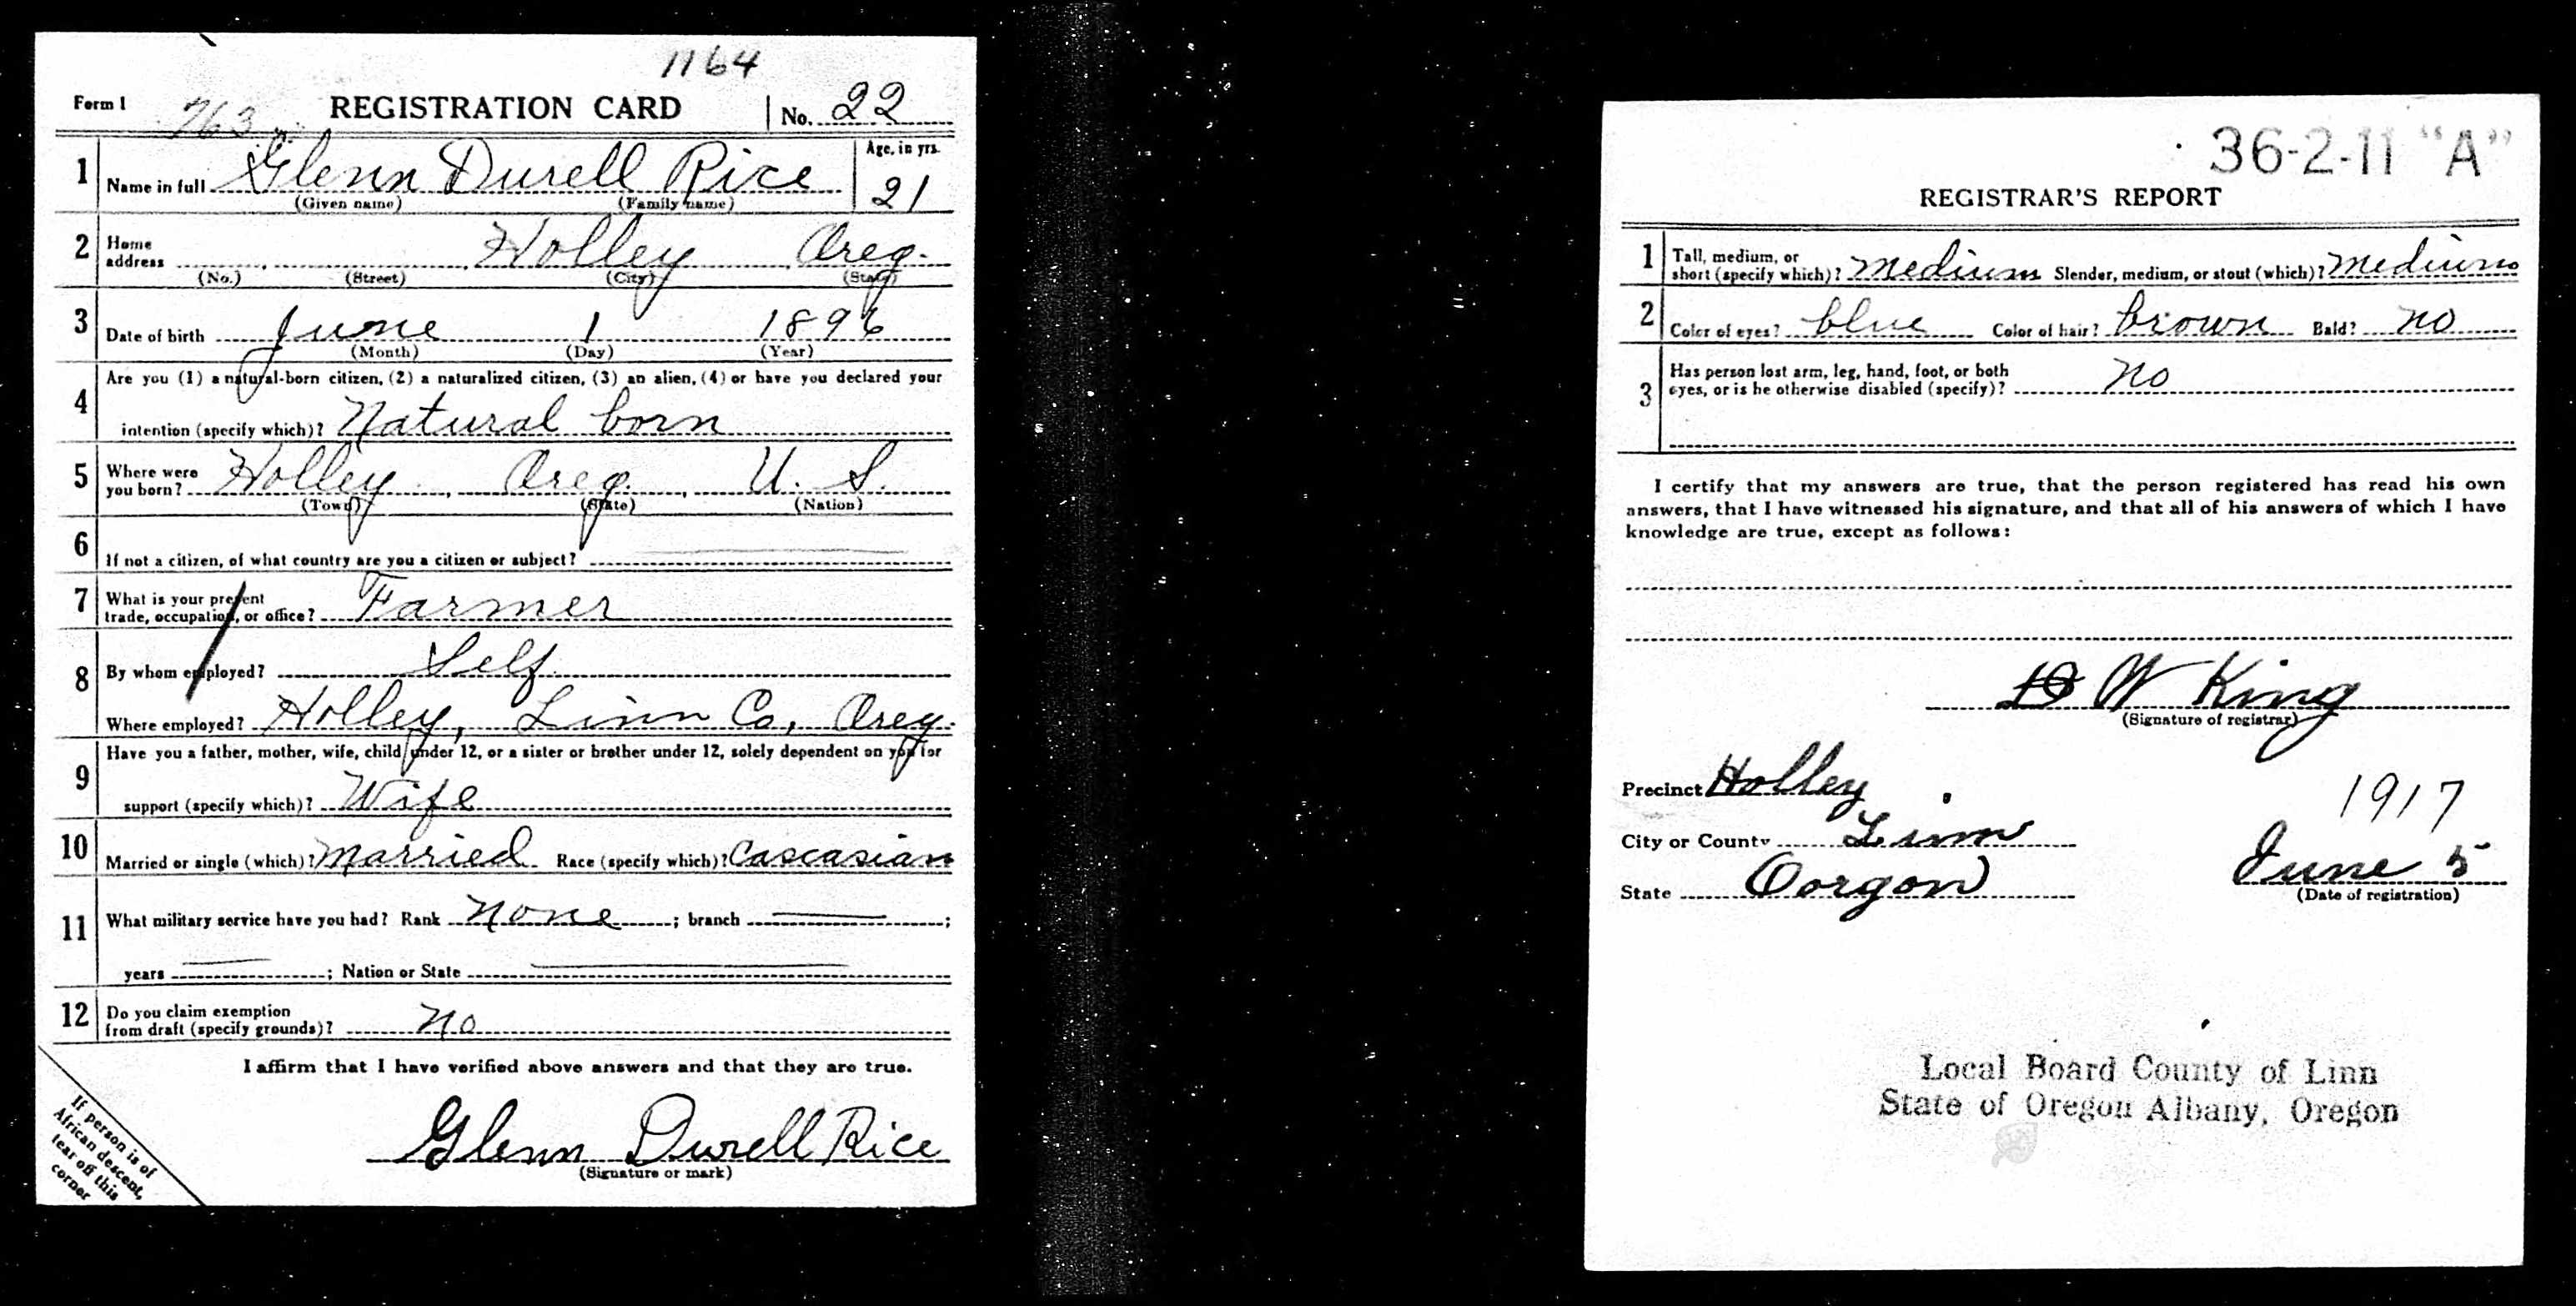 1164
Form 1 763 REGISTRATION CARD No. 22
1 Name in full Glenn Durell Rice Age, in yrs. 21
(Given name) (Family name)
2 Home address Holley Oreg.
(No.) (Street) (City) (State)
3 Date of birth June 1 1896
(Month) (Day) (Year)
4 Are you (1) a natural-born citizen, (2) a naturalized citizen, (3) an alien, (4) or have you declared your
intention (specify which)? Natural born
5 Where were you born? Holley, Oreg., U. S.
(Town) (State) (Nation)
6 If not a citizen, of what country are you a citizen or subject?
7 What is your present
trade, occupation, or office? Farmer
8 By whom employed? Self
Where employed? Holley, Linn Co, Oreg.
9 Have you a father, mother, wife, child under 12, or a sister or brother under 12, solely dependent on you for
support (specify which)? Wife
10 Married or single (which)? Married Race (specify which)? Cascasian
11 What military service have you had? Rank None; branch ;
years ; Nation or State
12 Do you claim exemption
from draft (specify grounds)? No
I affirm that I have verified above answers and that they are true.
Glenn Durell Rice
(Signature or mark)
If person is of
African descent,
tear off this
corner
36-2-11 "A"
REGISTRAR'S REPORT
1 Tall, medium, or
short (specify which)? Medium Slender, medium, or stout (which)? Medium
2 Color of eyes? blue Color of hair? Brown Bald? No
3 Has person lost arm, leg, hand, foot, or both
eyes, or is he otherwise disabled (specify)? No
I certify that my answers are true, that the person registered has read his own
answers, that I have witnessed his signature, and that all of his answers of which I have
knowledge are true, except as follows:
W King
(Signature of registrar)
Precinct Holley
1917
City or County Linn
State Oorgon June 5
(Date of registration)
Local Board County of Linn
State of Oregon Albany, Oregon